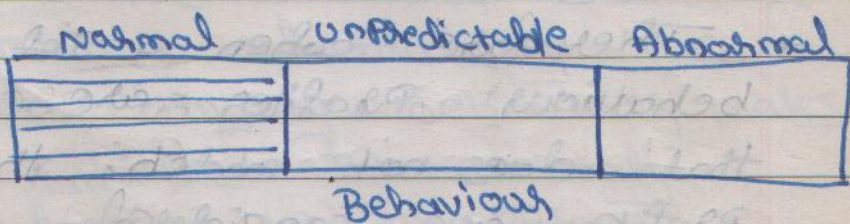 Normal unpredictable Abnormal
Behaviour